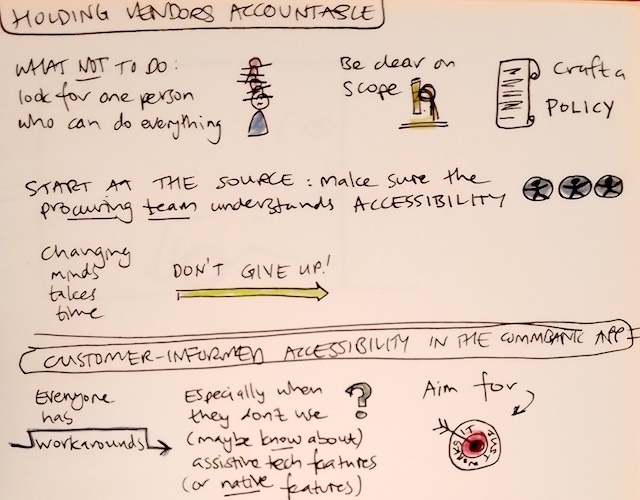 HOLDING VENDORS ACCOUNTABLE
WHAT NOT TO DO:
look for one person
who can do everything
Be clear on
scope
Craft a
POLICY
START AT THE SOURCE: make sure the
procuring team understands ACCESSIBILITY
Changing
minds
takes
time
DON'T GIVE UP!
CUSTOMER-INFORMED ACCESSIBILITY IN THE COMMBANK APP
Everyone
has
workarounds
Especially when
they don't use
(maybe know about)
assistive tech features
(or native features)
?
Aim for
IT JUST WORKS